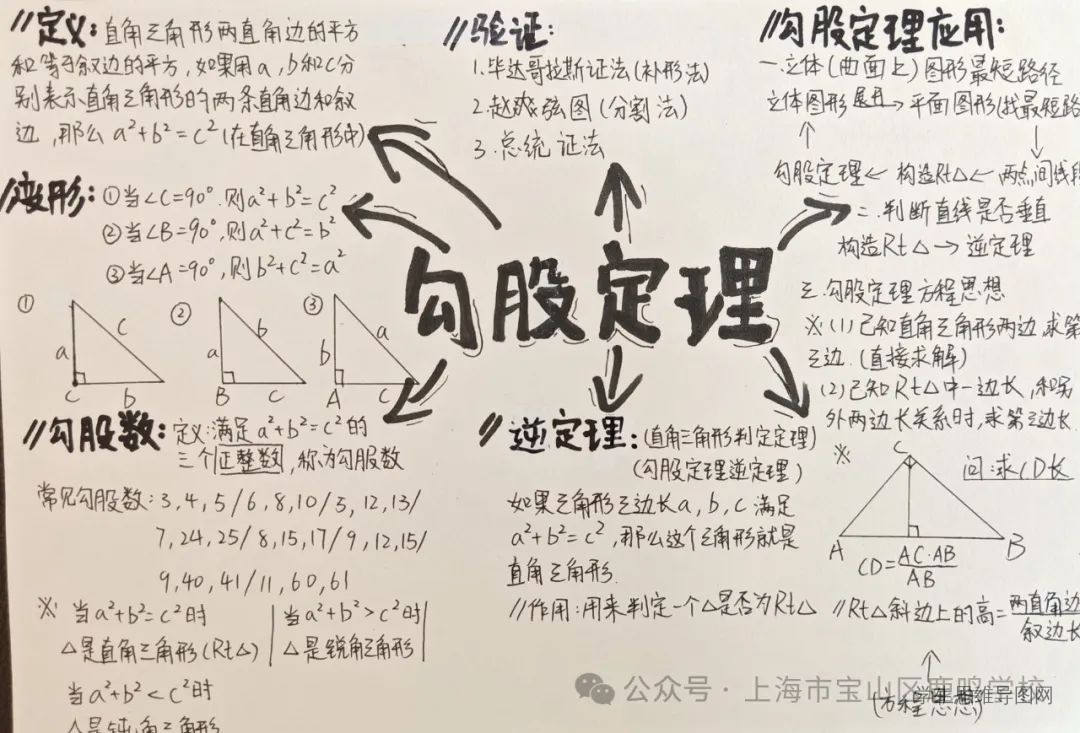 //定义:直角三角形两直角边的平方
和等于斜边的平方,如果用a,b和c分
别表示直角三角形的两条直角边和斜
边,那么a²+b²=c²(在直角三角形中)
//变形:①当∠C=90°.则a²+b²=c²
②当∠B=90°,则a²+c²=b²
③当∠A=90°,则b²+c²=a²
① ② ③
a c C b
a b B c
b a A c
//勾股数:定义:满足a²+b²=c²的
三个正整数,称为勾股数
常见勾股数:3,4,5/6,8,10/5,12,13/
7,24,25/8,15,17/9,12,15/
9,40,41/11,60,61
※ 当a²+b²=c²时
△是直角三角形(Rt△)
当a²+b²>c²时
△是锐角三角形
当a²+b²<c²时
△是钝角三角形
勾股定理
//验证:
1.毕达哥拉斯证法(补形法)
2.赵爽弦图(分割法)
3.总统证法
//逆定理:(直角三角形判定定理)
(勾股定理逆定理)
如果三角形三边长a,b,c满足
a²+b²=c²,那么这个三角形就是
直角三角形.
//作用:用来判定一个△是否为Rt△
//勾股定理应用:
一.立体(曲面上)图形最短路径
立体图形 展开→ 平面图形(找最短路
勾股定理← 构造Rt△← 两点间线段
二.判断直线是否垂直
构造Rt△→逆定理
三.勾股定理方程思想
※(1)已知直角三角形两边求第
三边.(直接求解)
(2)已知Rt△中一边长,和另
外两边长关系时,求第三边长.
※ C 问:求CD长
A B
CD=AC·AB/AB
//Rt△斜边上的高=两直角边/斜边长
(方程思想)
公众号·上海市宝山区鹿鸣学校
学生思维导图网